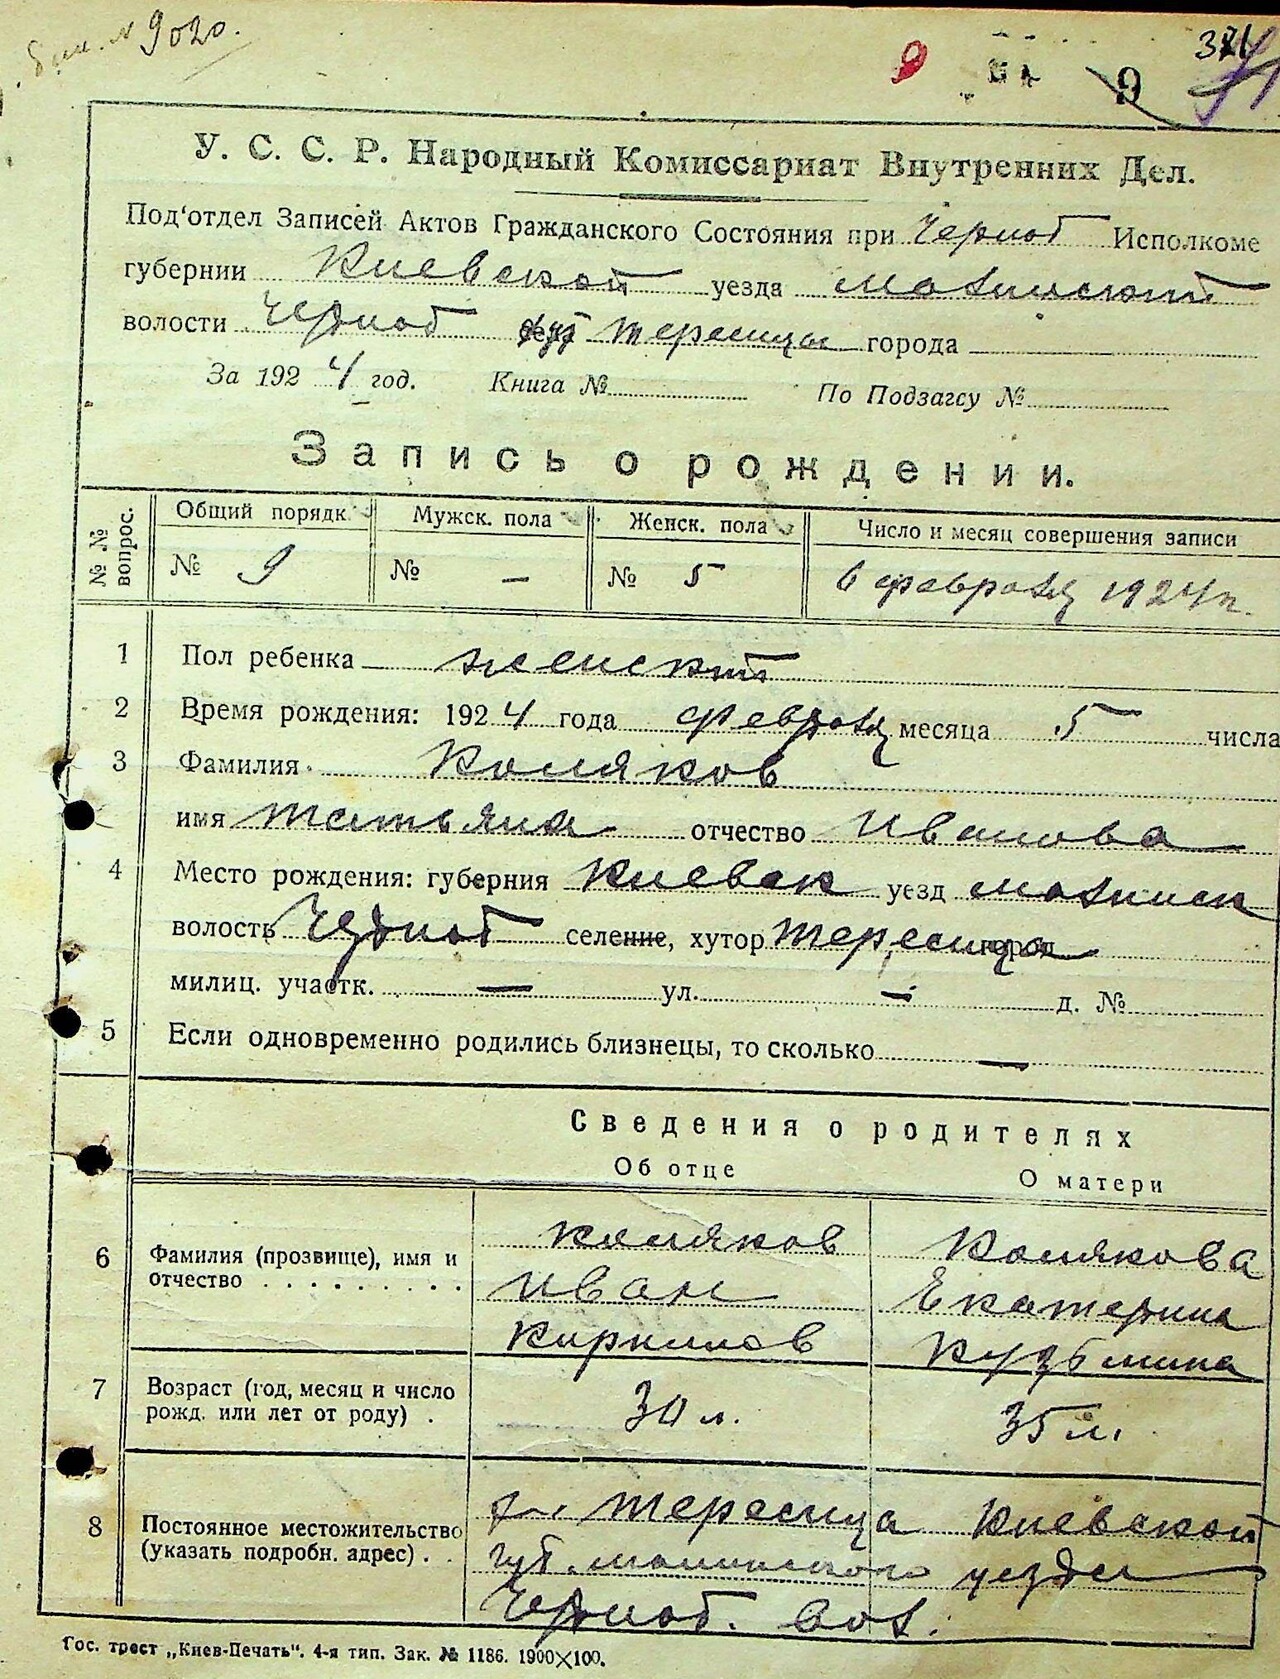 № 9020.
9 374
У. С. С. Р. Народный Комиссариат Внутренних Дел.
Под'отдел Записей Актов Гражданского Состояния при Черноб Исполкоме
губернии Киевской уезда
волости Черноб хут Тересицы города
За 1924 год. Книга № По Подзагсу №
Запись о рождении.
№ № вопрос. Общий порядк Мужск. пола Женск. пола Число и месяц совершения записи
№ 9 № — № 5 6 февраля 1924 г.
1 Пол ребенка женский
2 Время рождения: 1924 года февраля месяца 5 числа
3 Фамилия Коляков
имя Татьяна отчество Иванова
4 Место рождения: губерния Киевск уезд
волость Черноб селение, хутор Тересица город
милиц. участк. — ул. — д. №
5 Если одновременно родились близнецы, то сколько —
Сведения о родителях
Об отце О матери
6 Фамилия (прозвище), имя и отчество Коляков Иван Кирилов Колякова Екатерина Кузьмина
7 Возраст (год, месяц и число рожд. или лет от роду) . 30 л. 35 л.
8 Постоянное местожительство (указать подробн. адрес) . . Тересица Киевской
губ. уезда
Черноб. вол.
Гос. трест „Киев-Печать“. 4-я тип. Зак. № 1186. 1900×100.